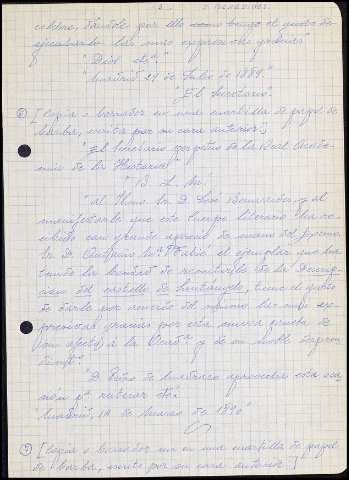 celebre, dándole por ello
expresivas gracias"
"Dios etc.ª"
"Madrid 24 de Julio de 1889."
"El Secretario".
[Copia o borrador en una cuartilla de papel de
barba, escrita por su cara anterior]
"El Secretario perpetuo de la Real Acade-
mia de la Historia"
"B. L. M.
"al Ilmo. Sr. D. José Benavides, y al
manifestarle que este Cuerpo literario ha re-
cibido con grande aprecio de mano del
Sr. D. Antonio Mª Fabié el ejemplar que ha
tenido la bondad de remitirle de la Descrip-
cion del castillo de Santángelo, tiene el gusto
de darle por acuerdo del mismo las más ex-
presivas gracias por esta nueva prueba de
su afecto a la Acadª y de su noble despren-
dimtº."
"D. Pedro de Madrazo aprovecha esta oca-
sión pª reiterar etc."
"Madrid, 14 de Marzo de 1890"
[Copia o borrador en una cuartilla de papel
de barba, escrita por su cara anterior]